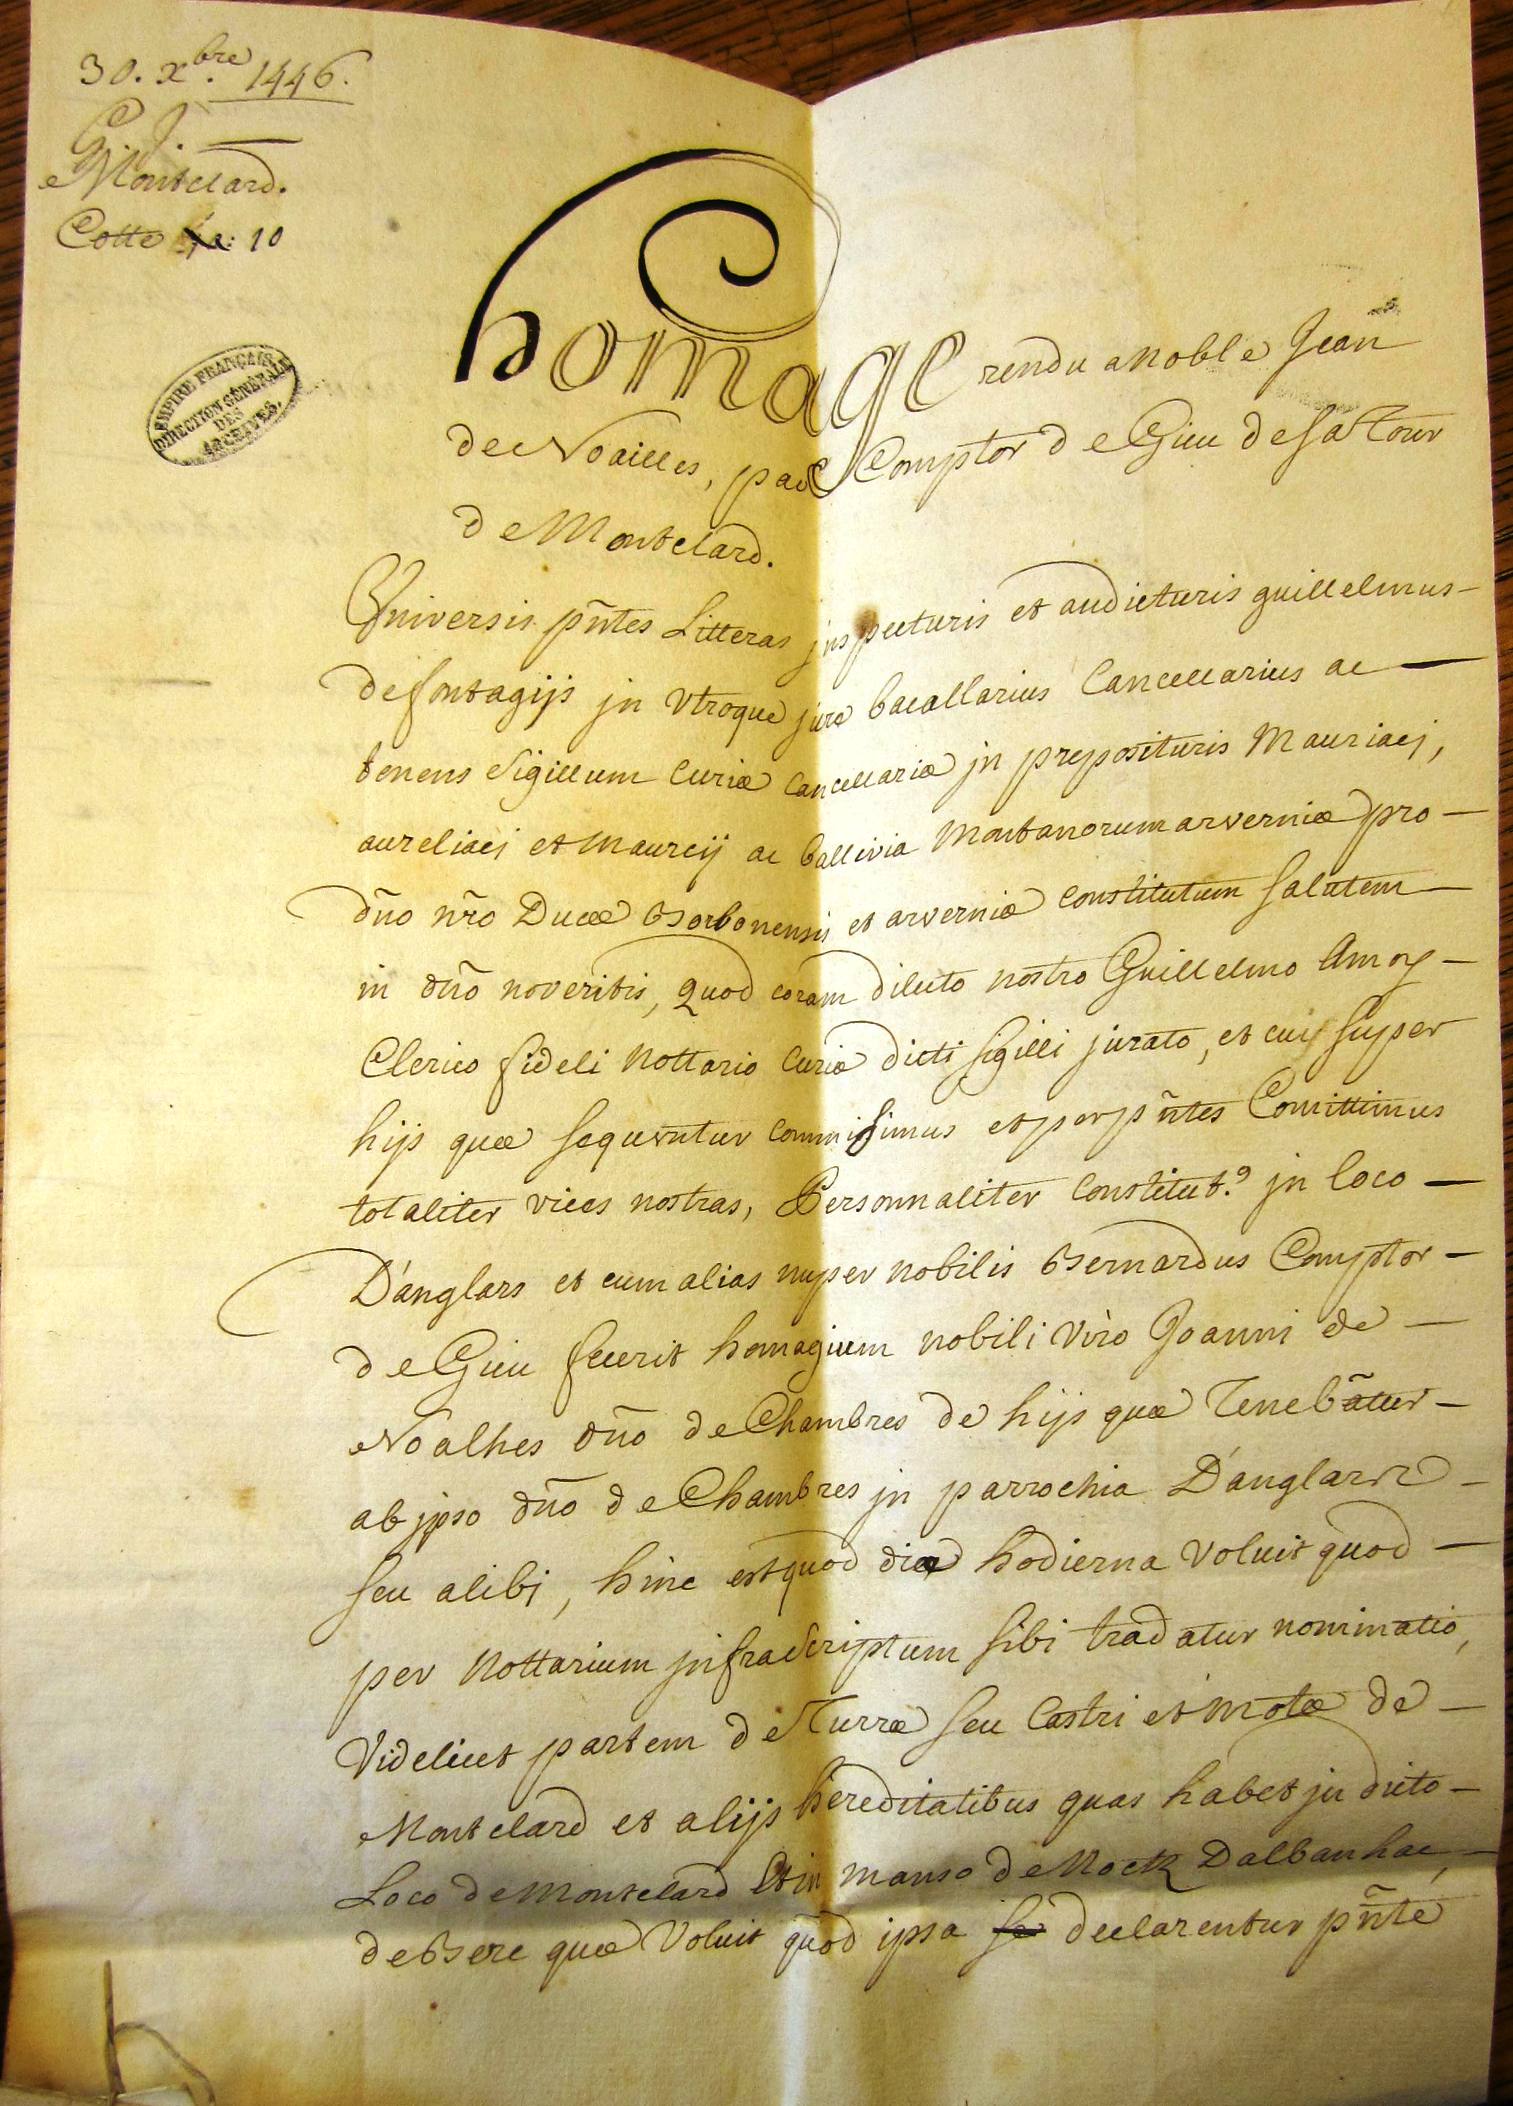 30. xbre. 1446.
G. J.
Montclard.
Cotte 10
EMPIRE FRANÇAIS
DIRECTION GÉNÉRALE
DES
ARCHIVES.
homage rendu a noble Jean
de Noailles, par Comptor de Giu de sa Tour
de Montclard.
Universis pñtes Litteras jnspecturis et audicturis guillelmus
de fontagijs jn Vtroque jure bacallarius Cancellarius ac
tenens Sigillum Curiæ Cancellariæ jn preposituris Mauriacj,
aureliacj et Maurcij ac ballivia Montanorum arverniæ pro
dño nr̃o Duce Borbonensi et arverniæ Constitutum Salutem
in dño noveritis, quod coram dilecto nostro Guillelmo Amory
Clerico fideli Nottario Curiæ dicti sigilli jurato, et cui super
hijs quæ sequntur commisimus et per pñtes Comittimus
totaliter vices nostras, Personnaliter Constitut.9 jn loco
D'anglars et cum alias nuper nobilis Bernardus Comptor
de Giu fecerit homagium nobili Viro Joanni de
Noalhes dño de Chambres de hijs quæ Tenebãtur
ab jpso dño de Chambres jn parrochia D'anglars
seu alibj, hinc est quod die hodierna Voluit quod
per Nottarium jnfrascriptum sibi tradatur nominatio,
Videlicet partem de Turre seu Castri et motæ de
Montclard et alijs hereditatibus quas habet jn dicto
Loco de Montclard Et in manso de Dalbanhac,
de Bere quæ Voluit quod ipsa se declarentur pñte